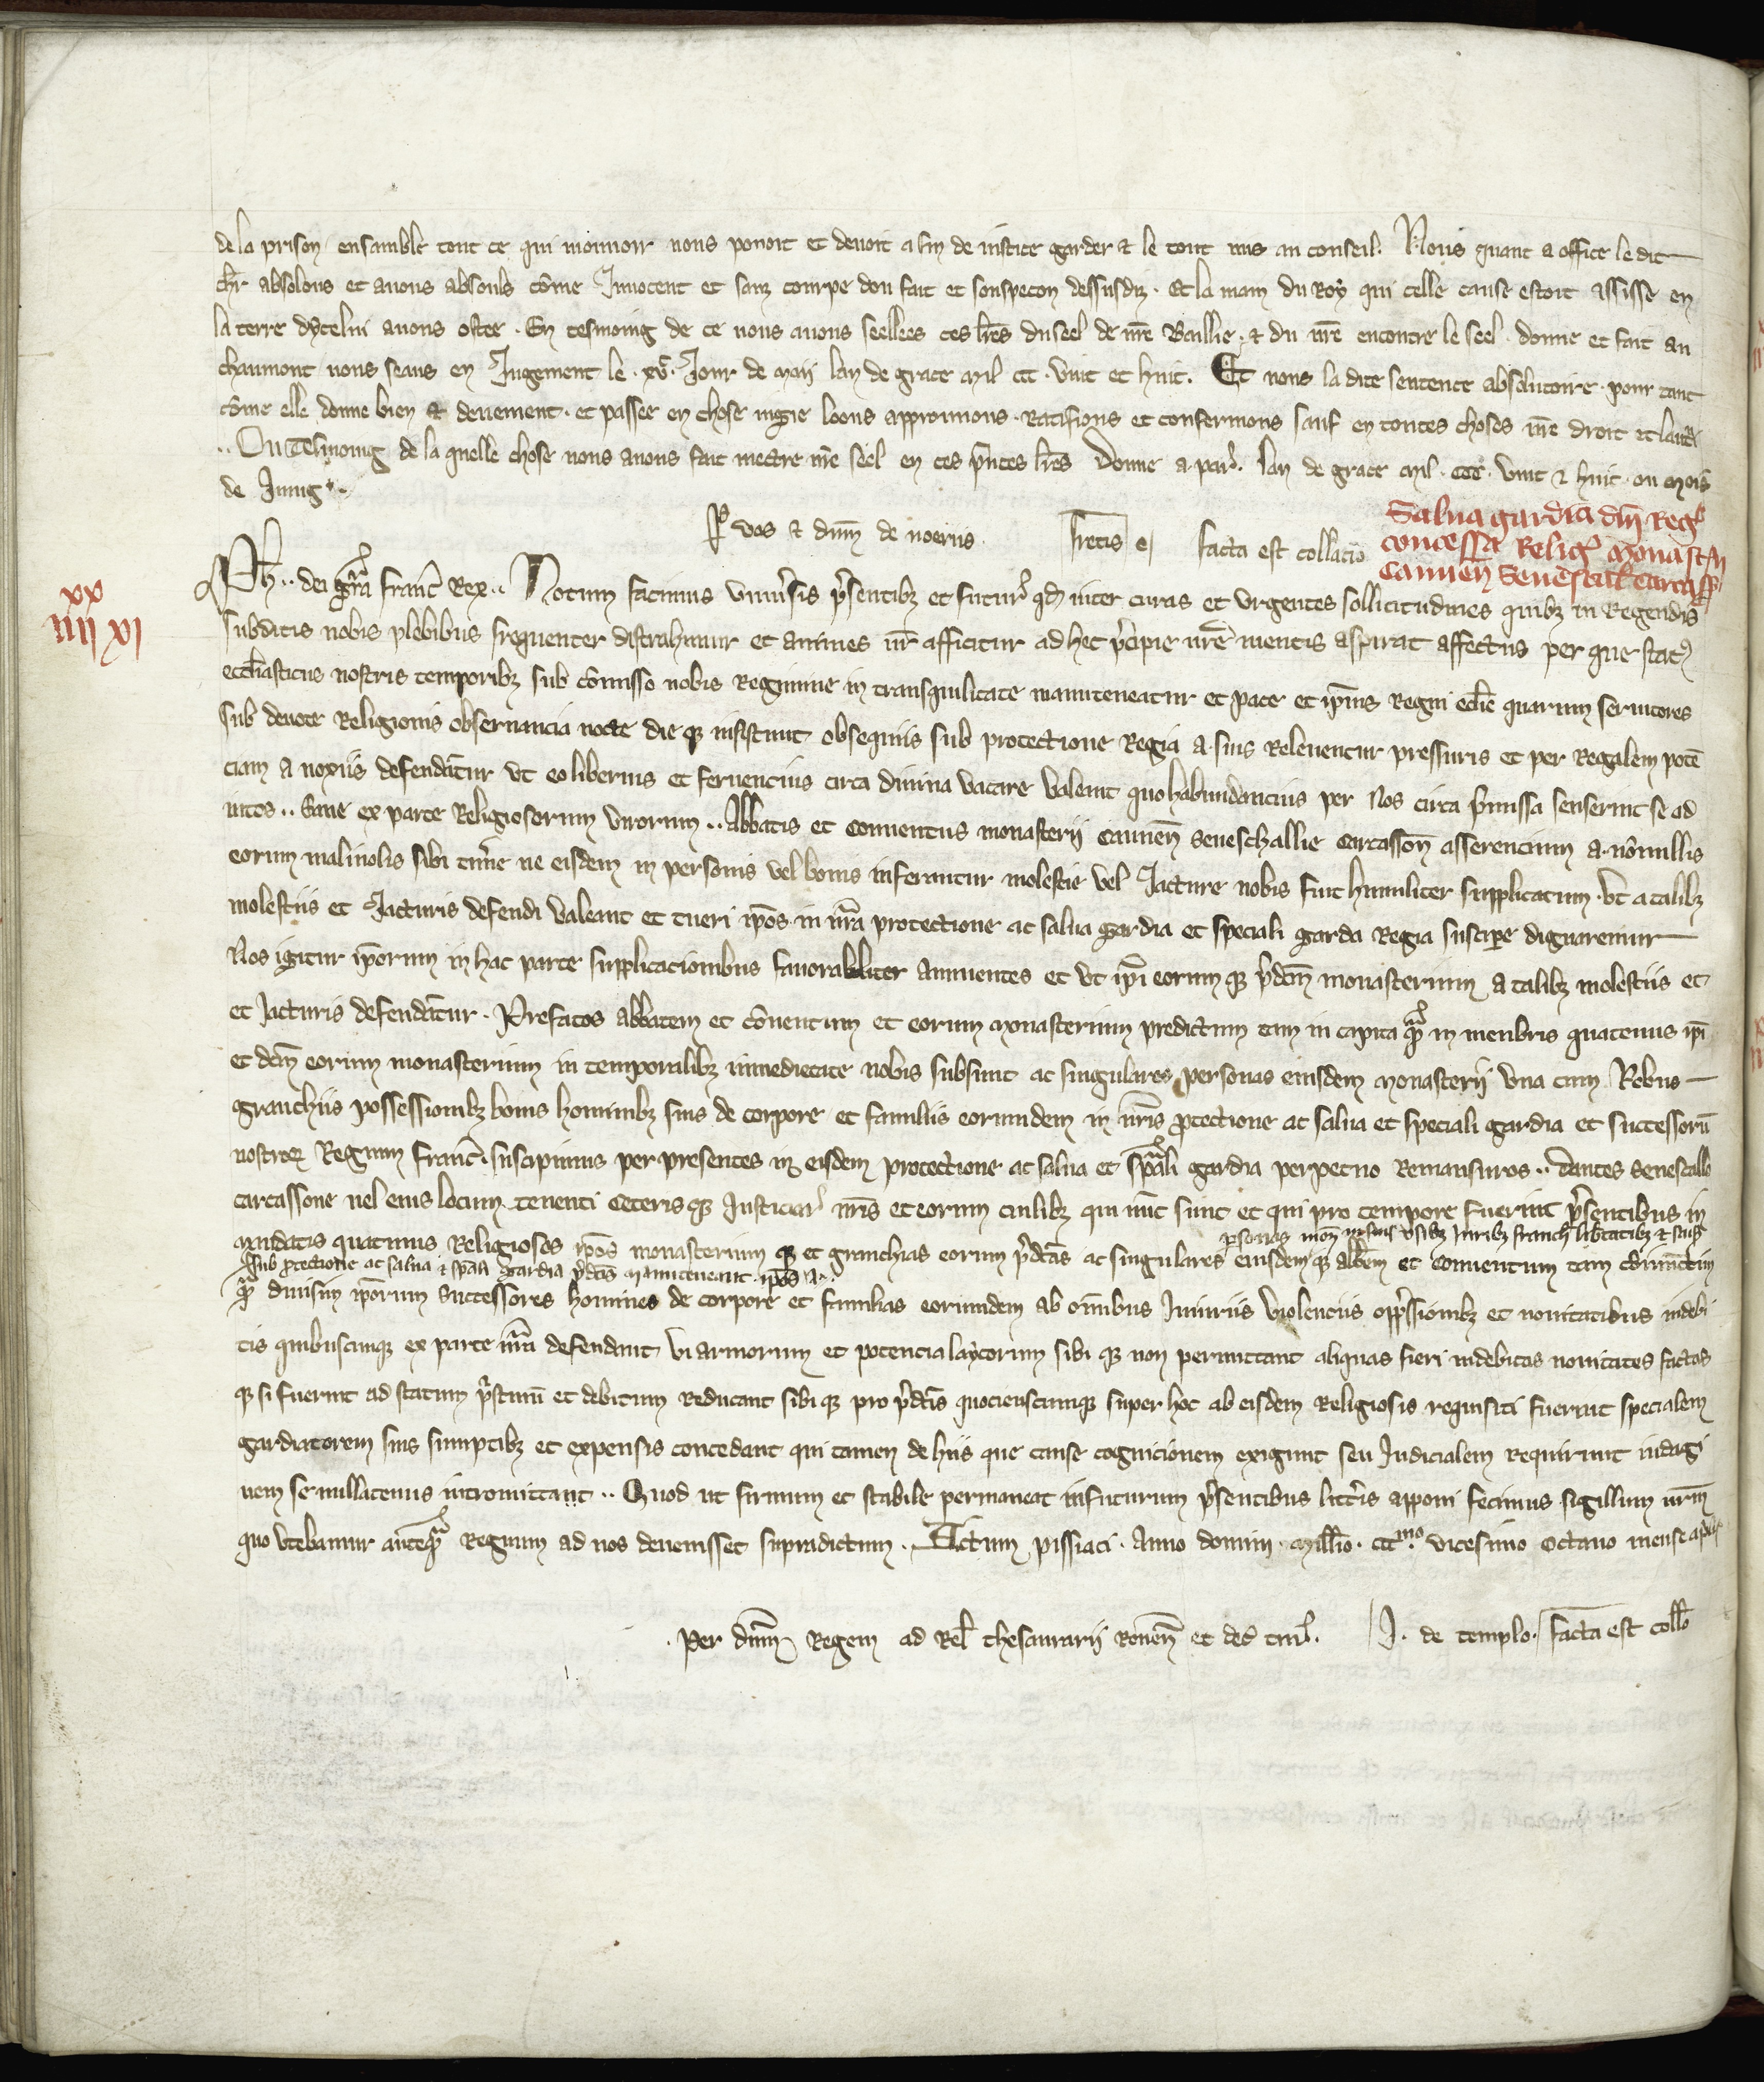 de la prison ensamble tout ce qui mouvoir nous pouoit et deuoit a fin de iustice garder et le tout mis au conseil. Nous quant a office le dit
chr absolons et auons absouls cōme Innocent et sanz courpe dou fait et souspecon dessusdiz. Et la main du Roy qui celle cause estoit assisse en
la terre dycelui auons ostee. En tesmoing de ce nous auons seellees ces lr̄es du seel de nr̄e Baillie. et du nr̄e encontre le seel. donne et fait au
chaumont nous seans en Jugement le .xv.e Jour de may lan de grace mil ccc. vint et huit. Et nous la dite sentence absolutoire. pour tant
cōme elle donne bien et deuement. et passee en chose iugie loons approuuons. Ratifions et confermons sauf en toutes choses nr̄e droit et lautr̄
.. En Tesmoing de la quelle chose nous auons fait mectre nr̄e seel en ces p̄ntes lr̄es Donne a par̄. lan de grace mil. ccc. vint et huit. ou mois
de Juing..
P vos et dnm̄ de noeriis. hects e facta est collacio
Salua gardia dn̄i Reḡ
concessa Reliḡ monast̄ii
caunen̄ Senescal carcass̄
xx
iiii xi
Ph.. dei gr̄a franc̄ Rex.. Notum facimus vniu̾sis p̄sentibz et futur̄ qd̄ inter curas et vrgentes sollicitudines quibz in Regendis
subditis nobis plebibus frequenter distrahimur et animes nr̄ afficitur ad hec p̄cipue nr̄e mentis aspirat affectus per que stat9
ecclīasticus nostris temporibz sub cōmisso nobis Regimine in transquilitate manuteneatur et pace et ip̄ius Regni ecclīe quarum seruitores
sub deuote Religionis obseruancia nocte die qz insistunt obsequiis sub protectione Regia a suis Releuentur pressuris et per Regalem poten̄
ciam a noxiis defendātur vt eo liberius et feruencius circa diuina vacare valeant quo habundancius per Nos circa p̄missa senserint se ad
iutos.. Sane ex parte Religiosorum virorum.. Abbatis et conuentus monasterij caunen̄ seneschallie carcasson̄ asserencium a nōnullis
eorum maliuolis sibi tim̾e ne eisdem in personis vel bonis inferantur molestie vel Jacture nobis fuit humiliter supplicatum. vt a talibz
molestiis et Jacturis defendi valeant et tueri ip̄os in nr̄a protectione ac salua gardia et speciali garda Regia suscip̾e dignaremur
Nos igitur ip̄orum in hac parte supplicacionibus fauorabiliter annuentes et vt ip̄i eorum qz p̄dcm̄ monasterium a talibz molestiis et
et Jacturis defendātur. Prefatos abbatem et cōuentum et eorum monasterium predictum tam in capita qm̄ in menbris quatenus ip̄i
et dcm̄ eorum monasterium in temporalibz inmediecate nobis subsunt ac singulares personas eiusdem monasterij vna cum Rebus
granchiis possessionibz bonis hominibz suis de corpore et familiis eorumdem in nr̄is protectione ac salua et speciali gardia et successorū
nostror̄ Regum franc̄. suscipimus per presentes in eisdem protectione ac salua et sp̄ali gardia perpetuo Remansuros.. dantes senescallo
carcassone uel eius locum tenenti ceteris qz Justiciar̄ nr̄is et eorum cuilibz qui nūc sunt et qui pro tempore fuerint p̄sentibus in
mādatis quatinus Religiosos ip̄os monasterium qz et granchias eorum p̄dcās ac singulares personas mon̄ in suis vsibz Juribz franch̄ lib̾tatibz et saisīs
eiusdem qz abb̄em et conuentum tam cōiunctim
sub protectione ac salua et sp̄ali gardia p̄dcīs manuteneant. ip̄os
qm̄ diuisim ip̄orum Successores homines de corpore et familias eorumdem ab om̄ibus Iniuriis violenciis opp̄ssionibz et nouitatibus indebi
tis quibuscunqz ex parte nr̄a defendant vi armorum et potencia laycorum sibi qz non permittant aliquas fieri indebitas nouitates factas
qz si fuerint ad statum p̄stinū et debitum Reducant sibi qz pro p̄dcīs quocienscumqz super hoc ab eisdem Religiosis requisiti fuerint specialem
gardiatorem suis sumptibz et expensis concedant qui tamen de hiis que cause cognicionem exigunt seu Judicialem Requirunt indagi
nem se nullatenus intromittant.. Quod ut firmum et stabile permaneat infuturum p̄sentibus litt̾is apponi fecimus sigillum nr̄m
quo vtebamur anteqm̄ Regnum ad nos deuenisset supradictum. Actum pissiaci. Anno domini. mill̄io. ccc.mo vicesimo octauo mense aprilis
. Per dnm̄ Regem ad Rel̄ thesaurarij Roten̄ et J. de templo. facta est coll̄o